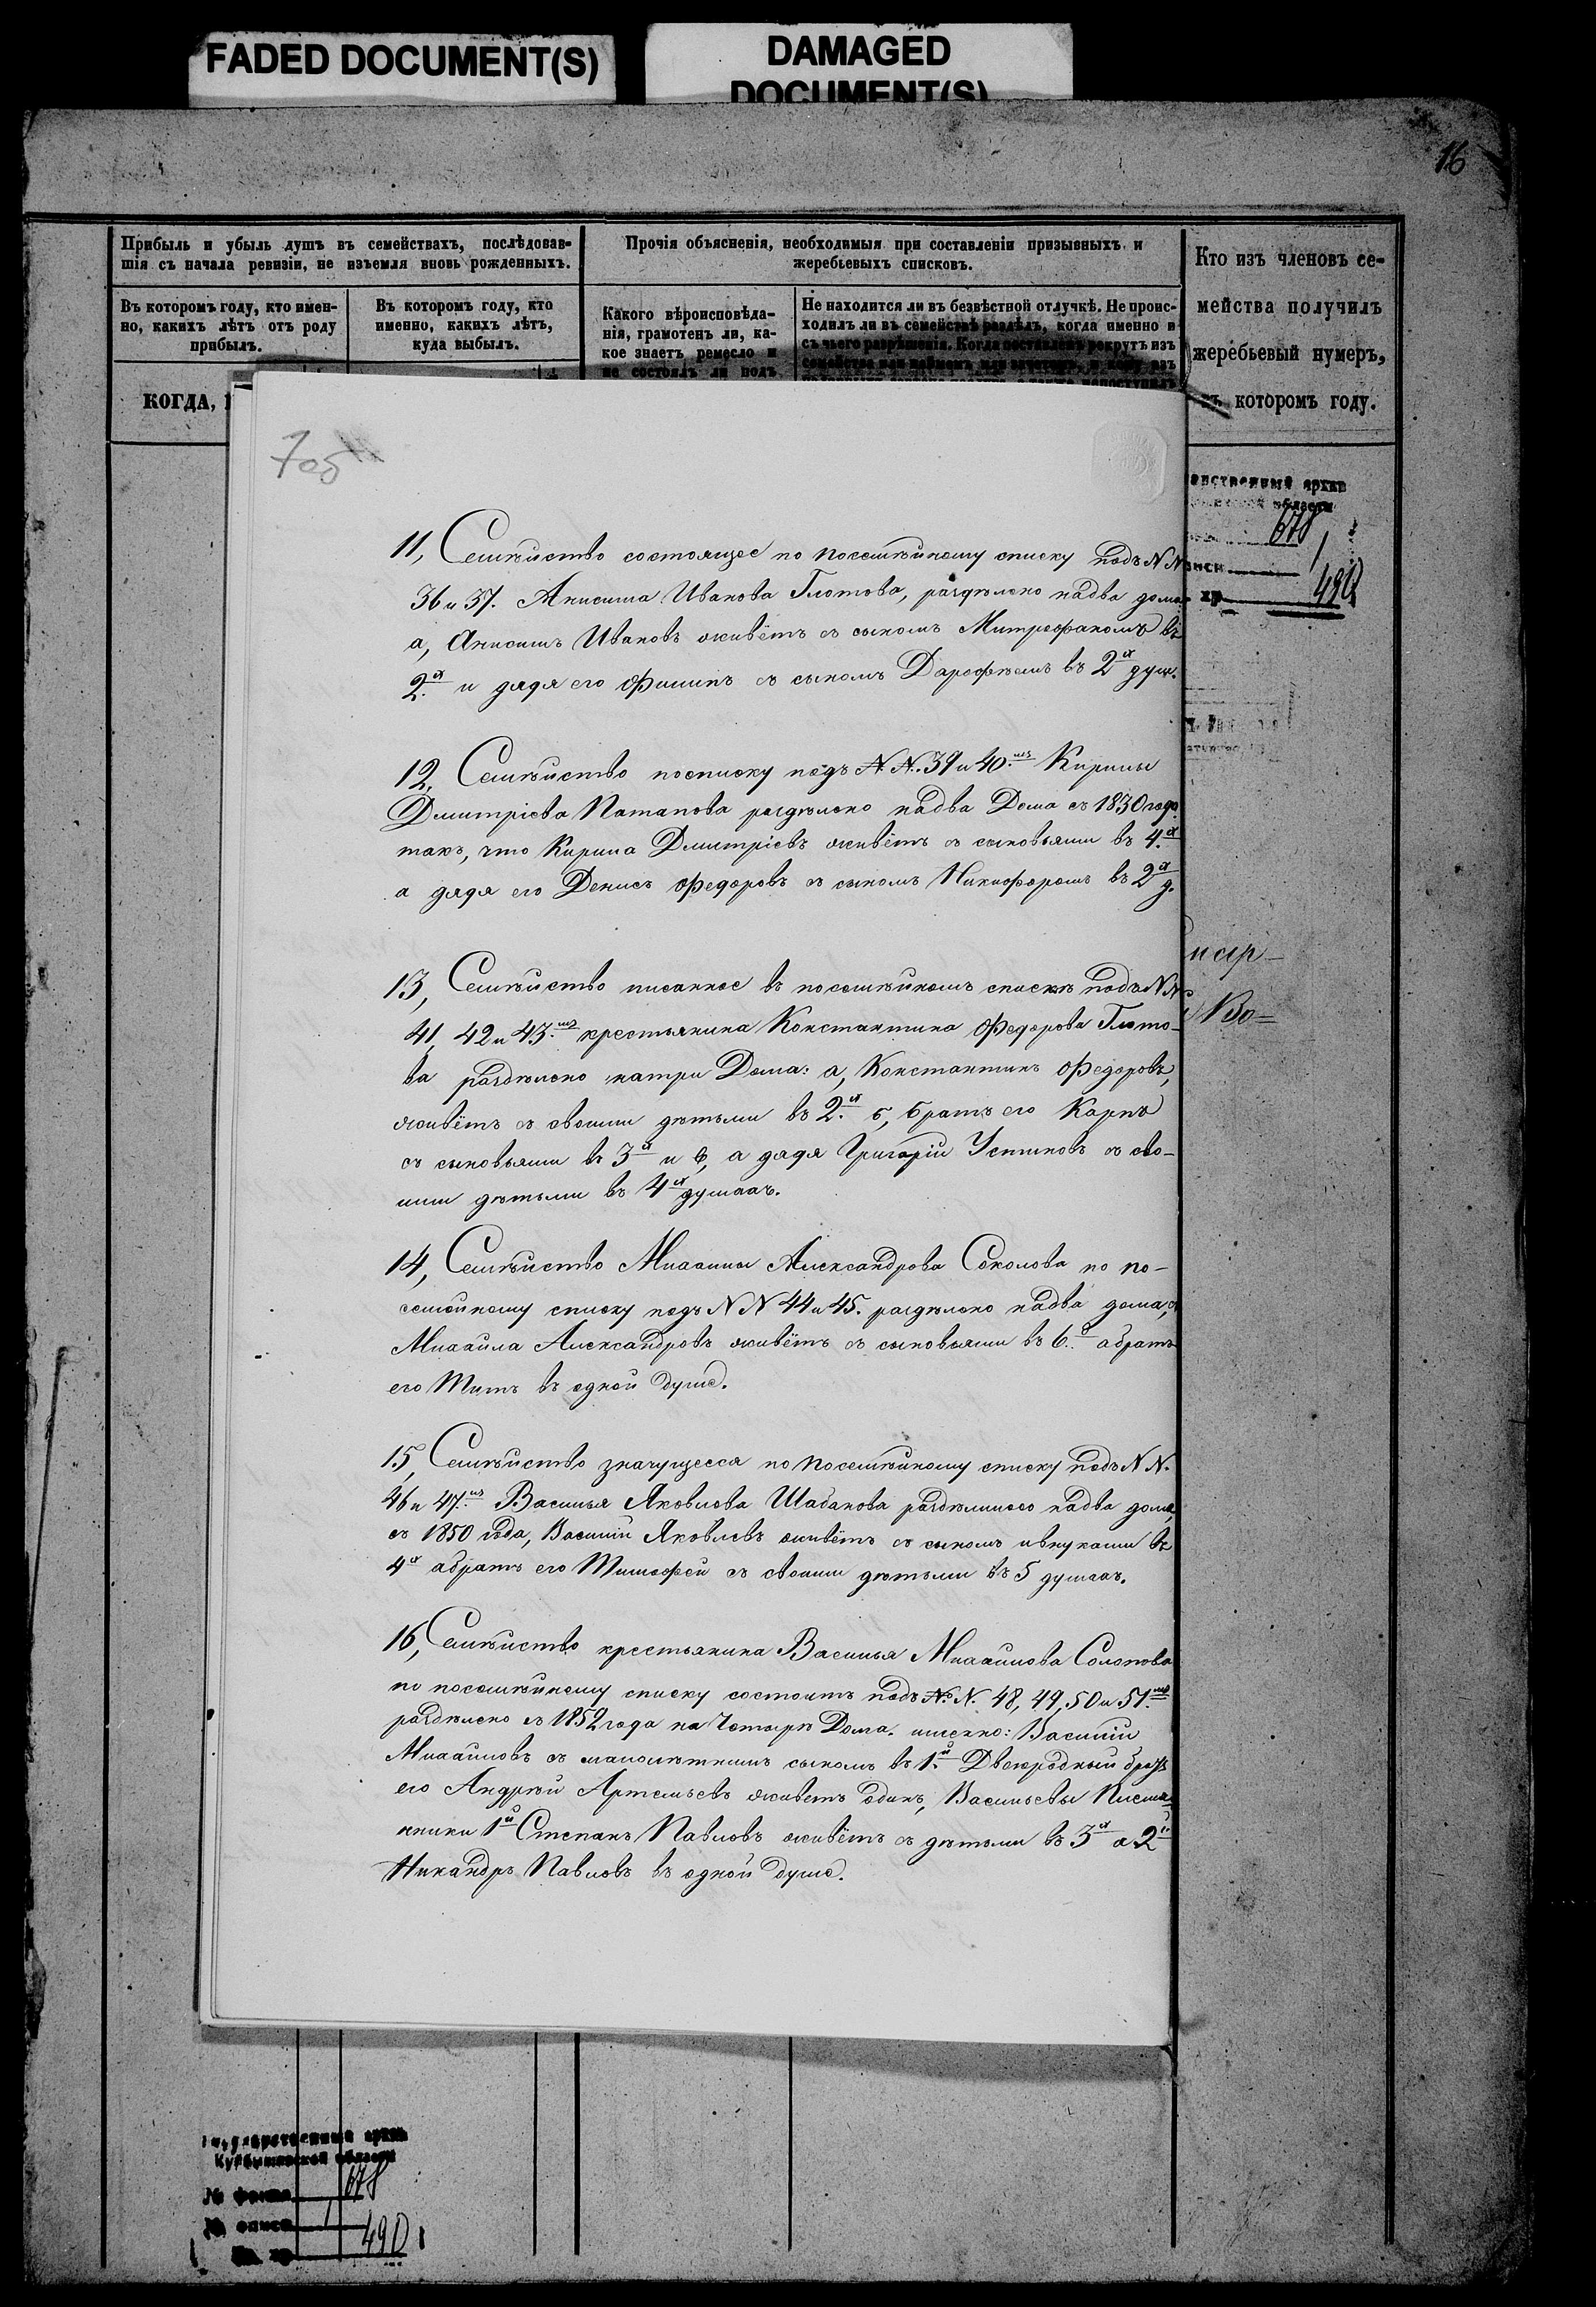 FADED DOCUMENT(S)
DAMAGED
DOCUMENT(S)
16
Прибыль и убыль душъ въ семействахъ, послѣдовав-
шія съ начала ревизіи, не изъемля вновь рожденныхъ.
Прочія объясненія, необходимыя при составленіи призывныхъ и
жеребьевыхъ списковъ.
Кто изъ членовъ се-
мейства получилъ
жеребьевый нумеръ,
въ которомъ году.
Въ которомъ году, кто имен-
но, какихъ лѣтъ отъ роду
прибылъ.
Въ которомъ году, кто
именно, какихъ лѣтъ,
куда выбылъ.
Какого вѣроисповѣда-
нія, грамотенъ ли, ка-
кое знаетъ ремесло и
не состоялъ ли подъ
Не находится ли въ безвѣстной отлучкѣ. Не проис-
ходилъ ли въ семействѣ раздѣлъ, когда именно и
съ чьего разрѣшенія. Когда поставленъ рекрутъ изъ
КОГДА,
7об
11, Семѣйство состоящее по посемѣйному списку подъ N N
36 и 37. Анисима Иванова Глотова, раздѣлено надва дома
а, Анисимъ Ивановъ живётъ съ сыномъ Митрофаномъ въ
2.х и дядя его Филипъ съ сыномъ Дарофѣемъ въ 2х душ.
12, Семѣйство посписку подъ N. N. 39 и 40.мъ Кирилы
Дмитріева Патапова раздѣлено надва Дома съ 1830 года
такъ, что Кирила Дмитріевъ живётъ съ сыновьями въ 4.х
а дядя его Денисъ Федоровъ съ сыномъ Никифоромъ въ 2х д.
13, Семѣйство писанное въ посемѣйномъ спискѣ подъ N N
41, 42 и 43.мъ крестьянина Константина Федорова Глото-
ва раздѣлено натри Дома: а, Константинъ Федоровъ,
живётъ съ своими дѣтьми въ 2.х б, братъ его Карпъ
съ сыновьями въ 3х и в, а дядя Григорій Устиновъ съ сво-
ими дѣтьми въ 4х душахъ.
14, Семѣйство Михаилы Александрова Соколова по по-
семейному списку подъ N N 44 и 45. раздѣлено надва дома, а
Михаила Александровъ живётъ съ сыновьями въ 6.и абратъ
его Титъ въ одной душѣ.
15, Семѣйство значущееся по посемѣйному списку подъ N N.
46 и 47.мъ Василья Яковлева Шабанова раздѣлилось надва дома,
съ 1850 года, Василій Яковлевъ живётъ съ сыномъ ивнуками въ
4х абратъ его Тимофей съ своими дѣтьми въ 5 душахъ.
16, Семѣйство крестьянина Василья Михайлова Солопова
по посемѣйному списку состоитъ подъ N. N. 48, 49, 50 и 51.мъ
раздѣлено съ 1852 года на Четырѣ Дома. именно: Василій
Михайловъ съ малолѣтнимъ сыномъ въ 1.й Двоюродный братъ
его Андрѣй Артемьевъ живетъ одинъ, Васильевы Племя-
нники 1й Степанъ Павловъ живётъ съ дѣтьми въ 3х а 2й
Никандръ Павловъ въ одной душѣ.
678
1
490
Государственный архив
Куйбышевской области
№ фонда 678
№ описи 1
490